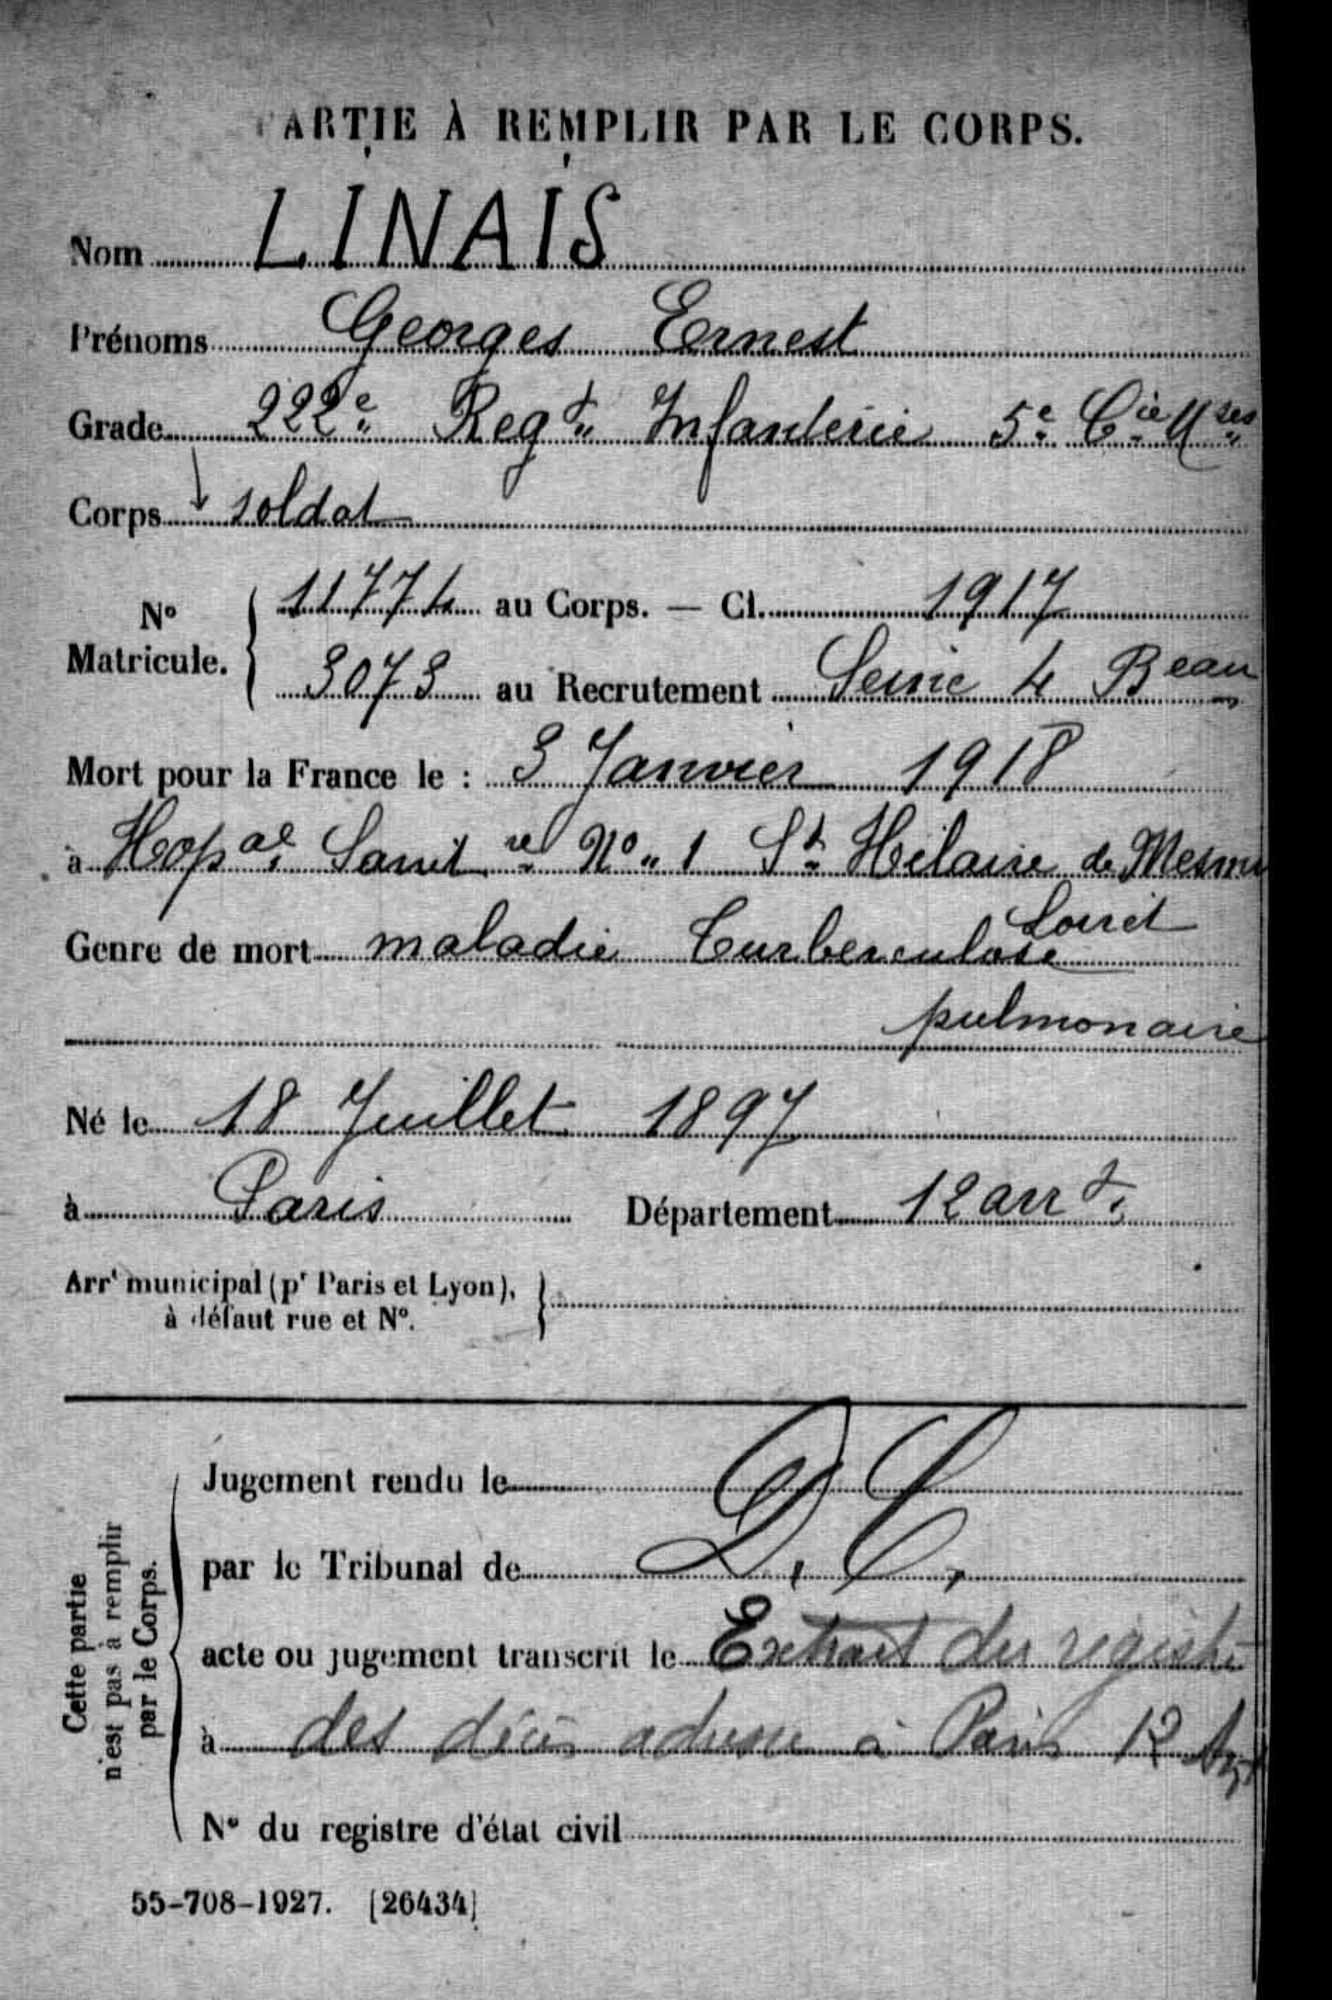 PARTIE À REMPLIR PAR LE CORPS.
Nom LINAIS
Prénoms Georges Ernest
Grade 222e Regt Infanterie 5e Cie Mses
Corps soldat
No Matricule. 11774 au Corps. — Cl. 1917
3073 au Recrutement Seine 4 Beau
Mort pour la France le : 3 Janvier 1918
à Hopal Sanitre No 1 St Hilaire de Mesmi
Loiret
Genre de mort maladie Turberculose
pulmonaire
Né le 18 Juillet 1897
à Paris Département 12 arrt
Arrt municipal (pr Paris et Lyon),
à défaut rue et No.
Cette partie
n'est pas à remplir
par le Corps.
Jugement rendu le
par le Tribunal de D. C.
acte ou jugement transcrit le Extrait du registre
à des décès adressé à Paris 12 Arrt
No du registre d'état civil
55-708-1927. [26434]